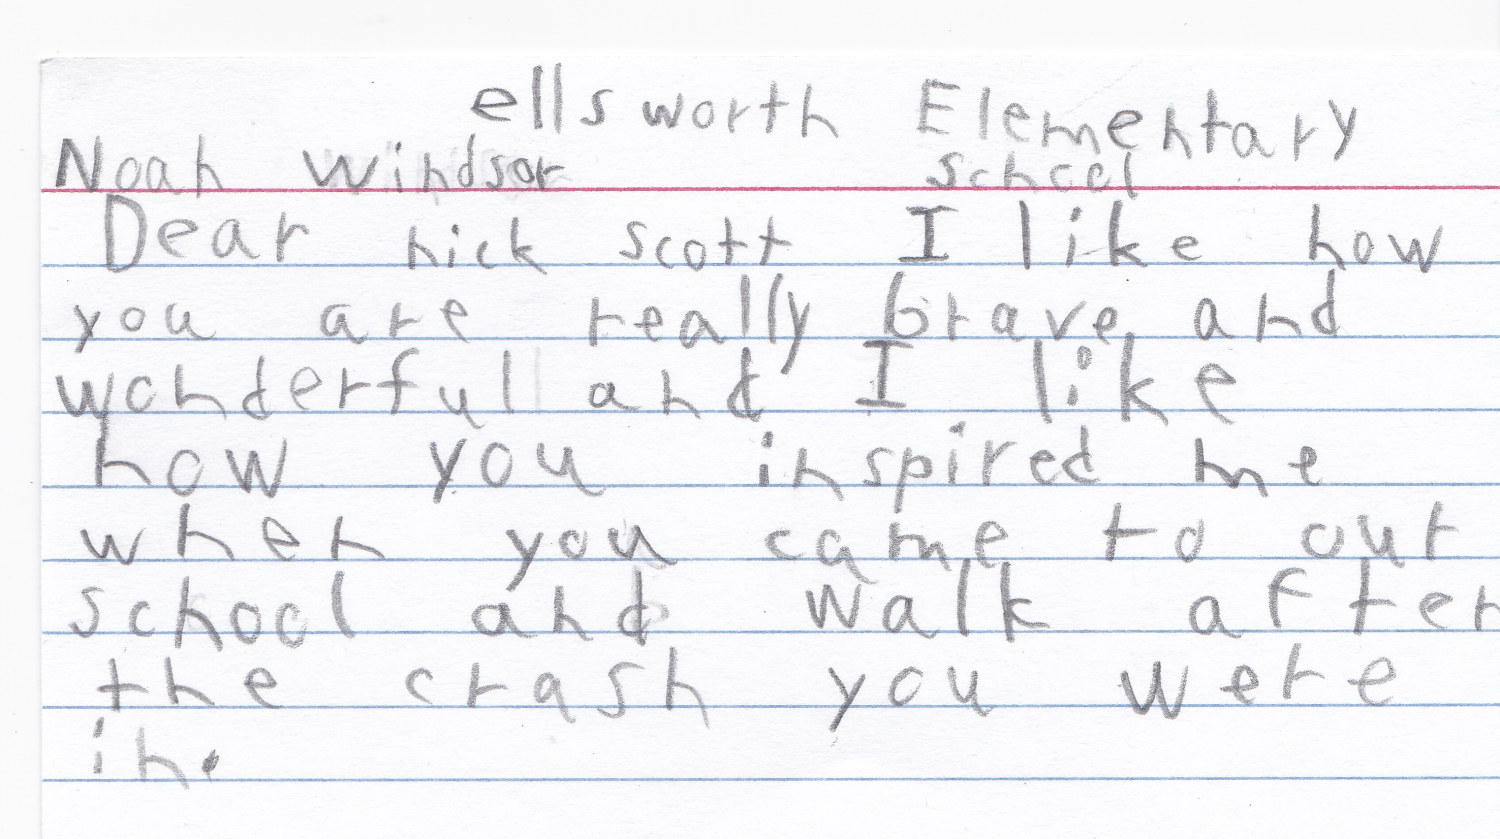 ellsworth Elementary
Noah Windsor school
Dear nick scott I like how
you are really brave and
wonderful and I like
how you inspired me
when you came to our
school and walk after
the crash you were
in.